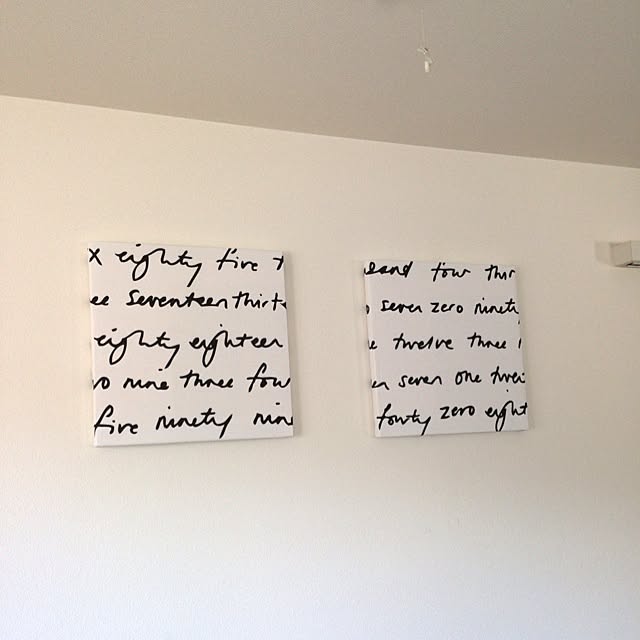 x eighty five t
ee seventeen thirt
eighty eighteen
ro nine three fou
five ninety nine
sand four thir
o seven zero ninety
e twelve three
en seven one twel
fourty zero eight